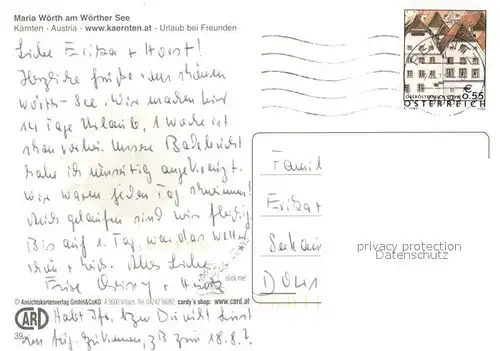 Maria Wörth am Wörther See
Kärnten - Austria - www.kaernten.at - Urlaub bei Freunden
Liebe Erika + Horst!
Herzliche Grüße vom schönen
Wörth-See. Wir machen hier
14 Tage Urlaub, 1 Woche ist
schon vorbei. Unsere Badebucht
habe ich umseitig angekreuzt.
Wir waren jeden Tag schwimmen!
Auch gelaufen sind wir fleißig.
Bis auf 1. Tag, war das Wetter
schön + heiß. Alles Liebe
Eure
Habt Ihr, bzw Du nicht Lust
zum 18.8.?
€ 0,55
ÖSTERREICH
Famil
Erika +
Seekair
privacy protection
Datenschutz
click me!
© Ansichtskartenverlag GmbH&CoKG A 9500 Villach, Tel. 04242 56062 cardy's shop: www.card.at
CARD
39